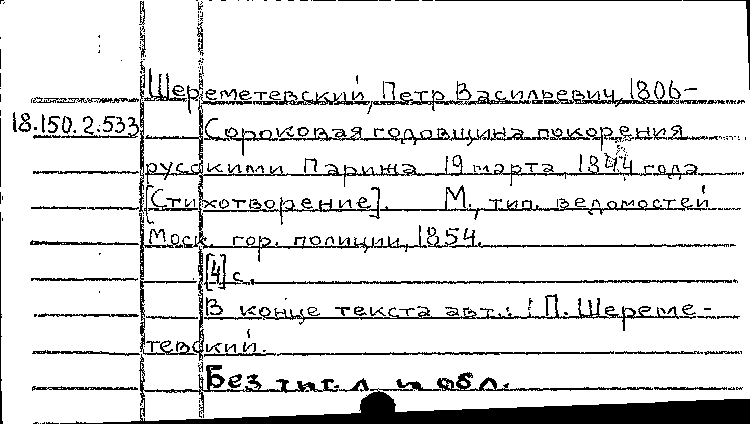 Шереметевский, Петр Васильевич, 1806-
18.150.2.533 Сороковая годовщина покорения
русскими Парижа 19 марта, года
[Стихотворение]. М., тип. ведомостей
Моск. гор. полиции, 1854.
[4] с.
В конце текста авт.: П. Шереме-
тевский.
Без тит. л. и обл.